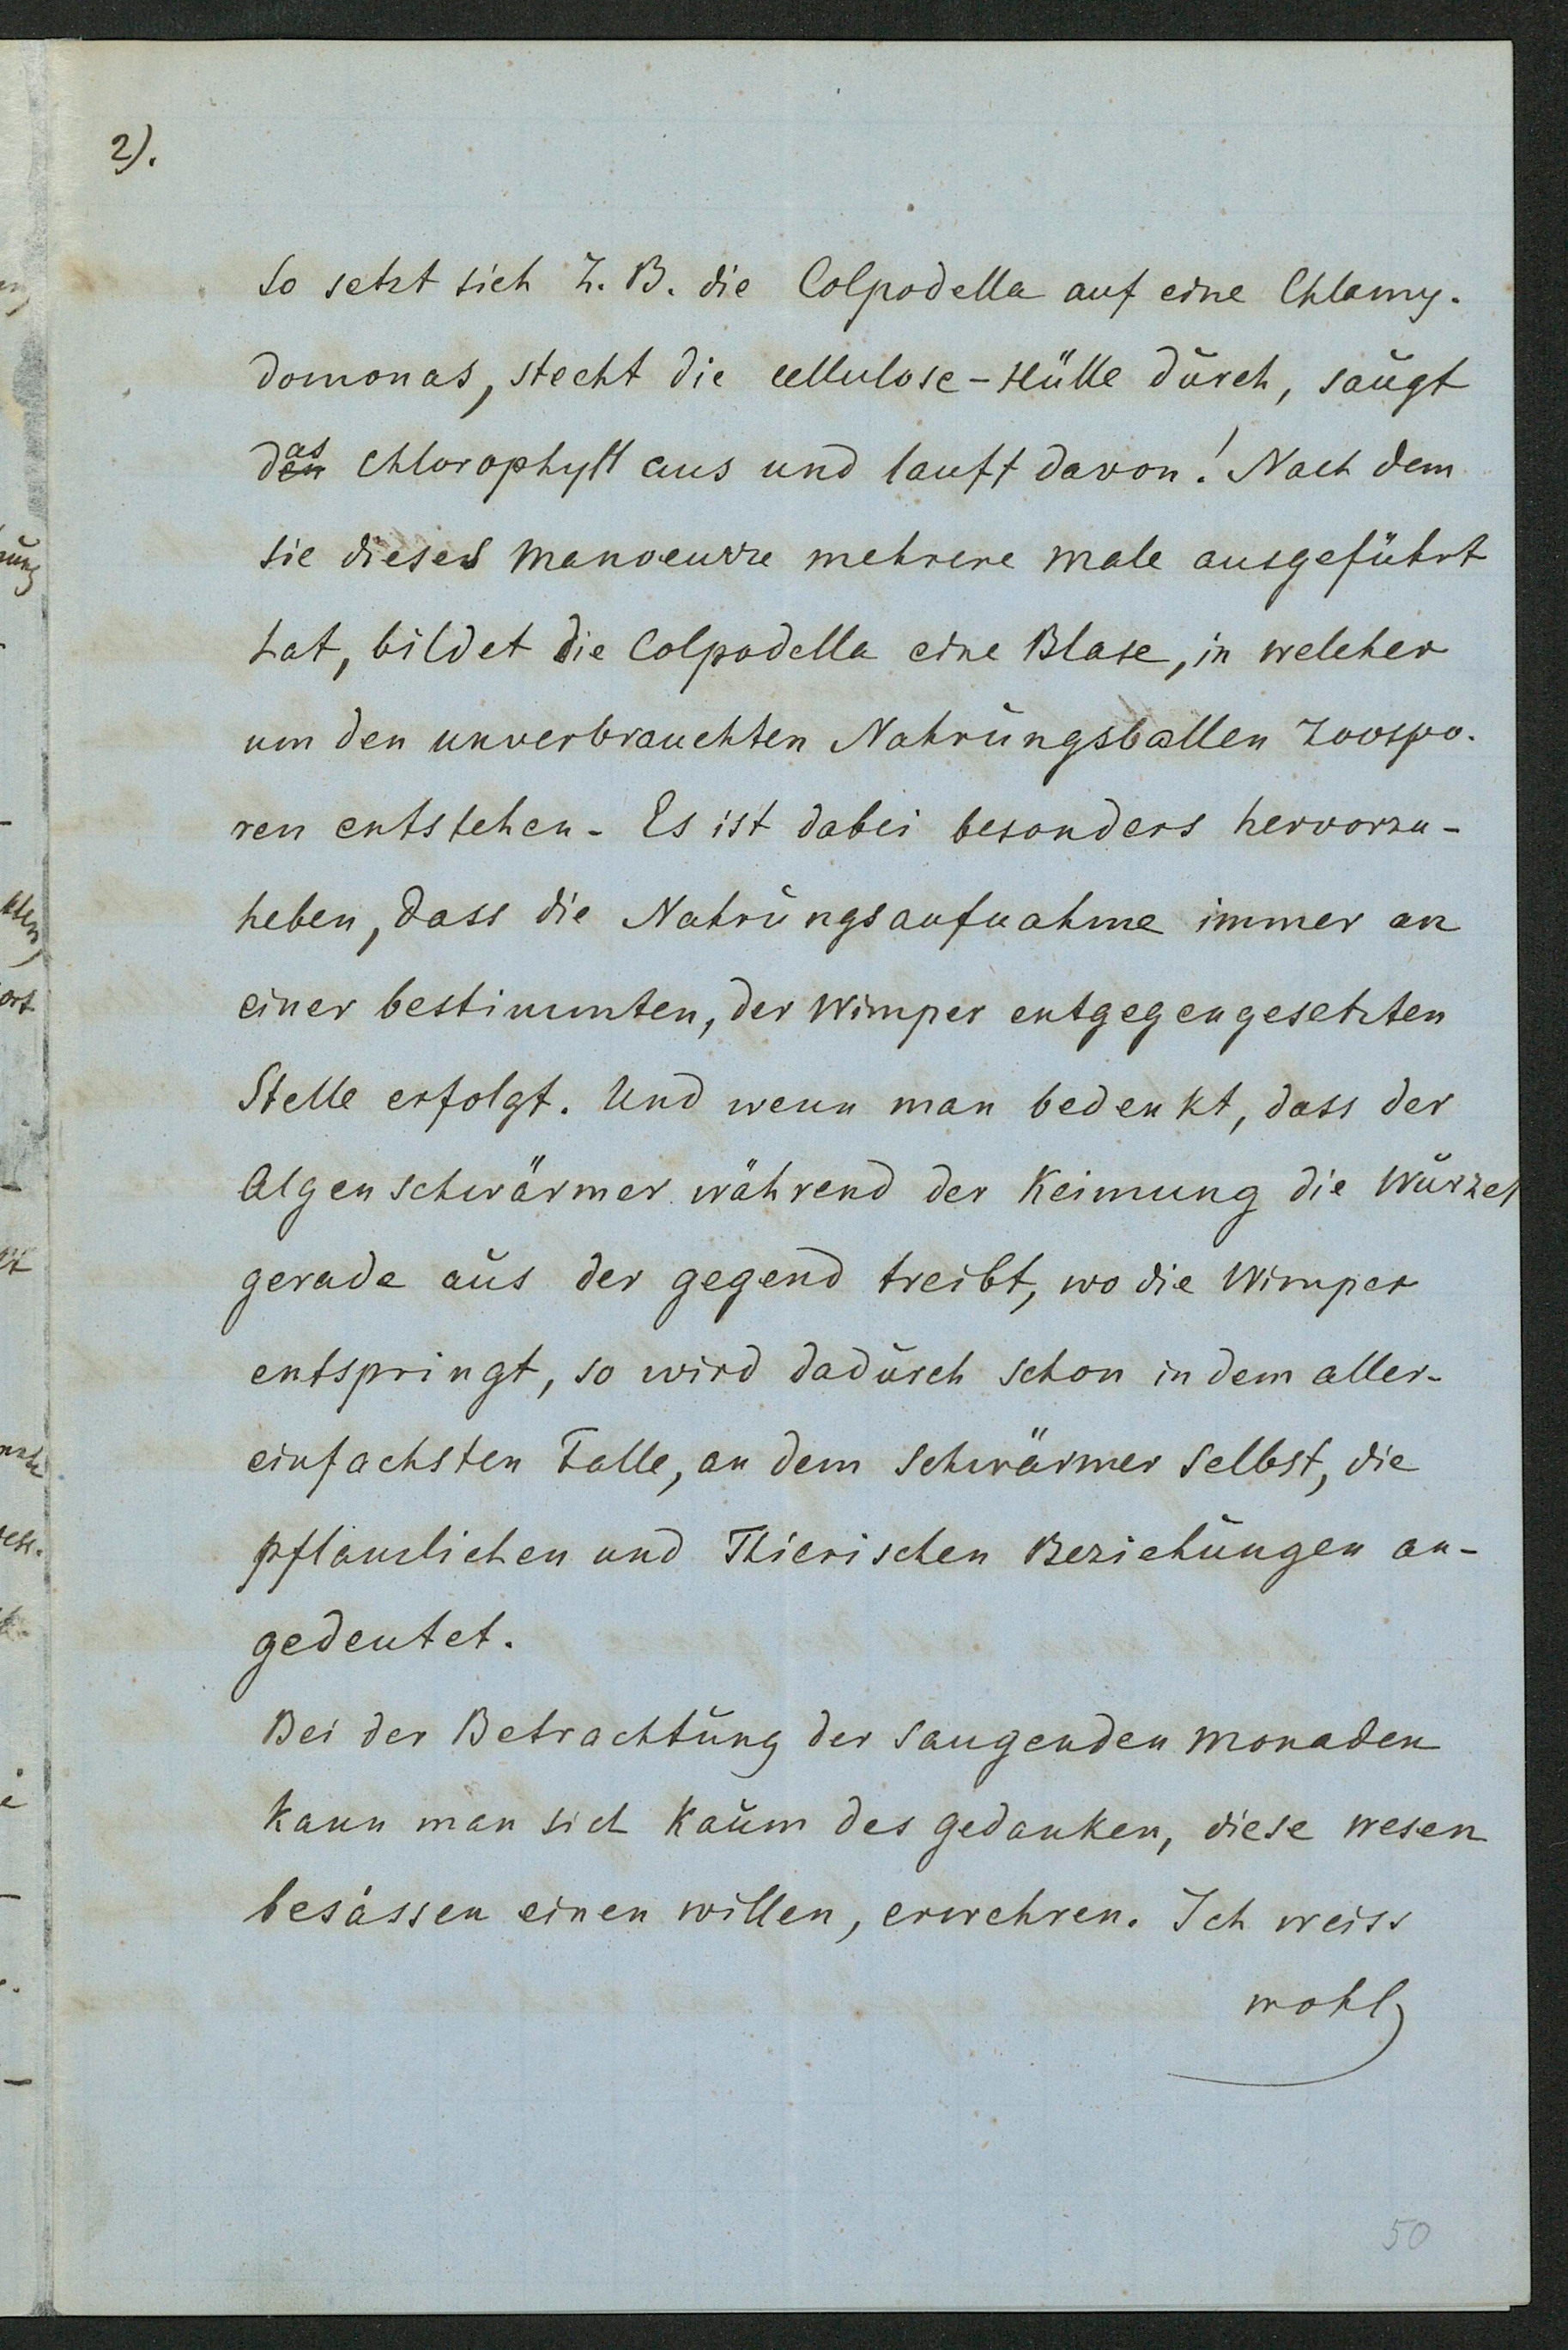 2).
So setzt sich z. B. die Colpodella auf eine Chlamy-
domonas, stecht die cellulose-Hülle durch, saugt
das chlorophyll aus und lauft davon! Nach dem
sie dieses manoeuvre mehrere male ausgeführt
hat, bildet die Colpodella eine Blase, in welcher
um den unverbrauchten Nahrungsballen Zoospo-
ren entstehen. Es ist dabei besonders hervorzu-
heben, dass die Nahrungsaufnahme immer an
einer bestimmten, der Wimper entgegengesetzten
Stelle erfolgt. Und wenn man bedenkt, dass der
Algenschwärmer während der Keimung die Wurzel
gerade aus der gegend treibt, wo die Wimper
entspringt, so wird dadurch schon in dem aller-
einfachsten Falle, an dem schwärmer selbst, die
pflanzlichen und Thierischen Beziehungen an-
gedeutet.
Bei der Betrachtung der saugenden monaden
kann man sich kaum des gedanken, diese wesen
besässen einen willen, erwehren. Ich weiss
wohl
50